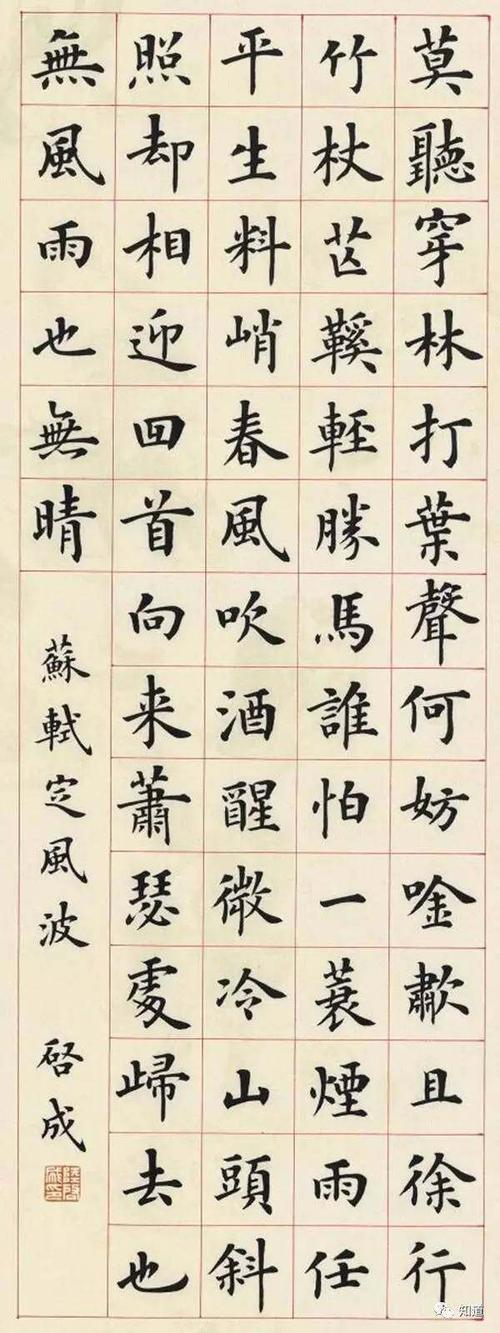 莫聽穿林打葉聲何妨唫歗且徐行
竹杖芒鞵輕勝馬誰怕一蓑煙雨任
平生料峭春風吹酒醒微冷山頭斜
照却相迎回首向来蕭瑟處歸去也
無風雨也無晴
蘇軾定風波 啓成
知道